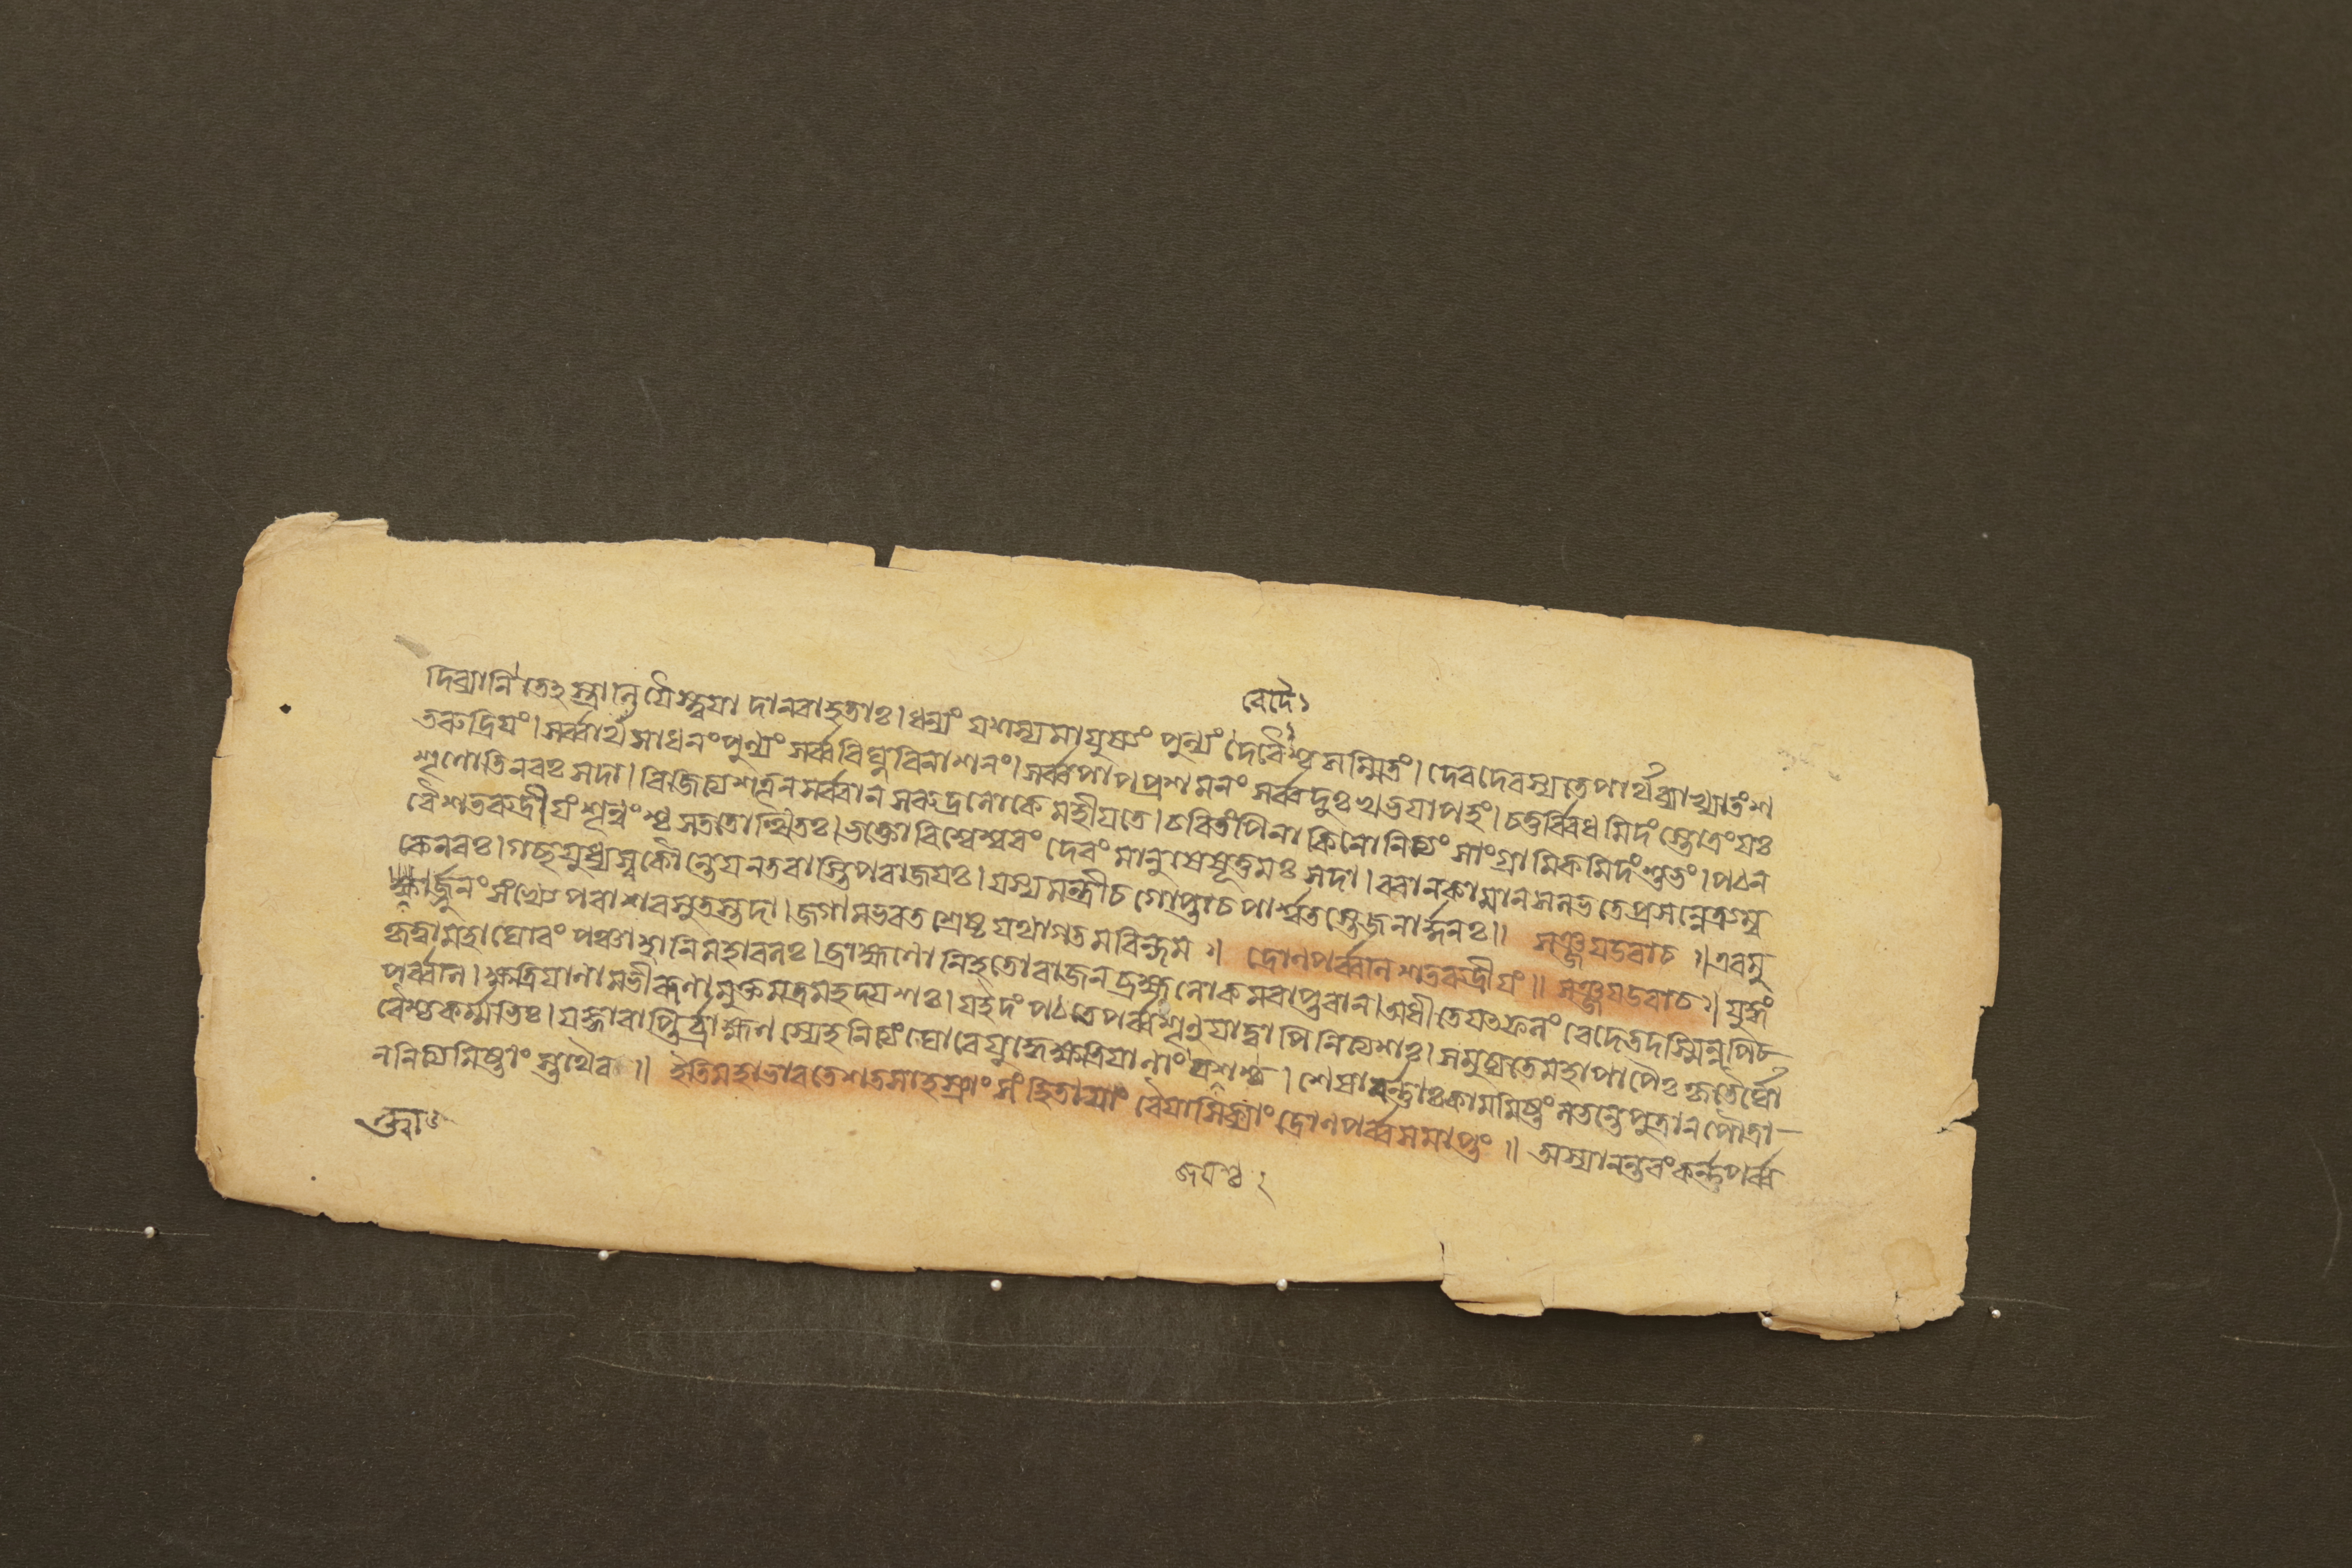 বেদৈঃ
দিব্যানি তেঽস্ত্রানি যৈস্ত্বয়া দানবাহতাঃ। ধন্যং যশস্যমায়ুষ্যং পুন্যং দেবৈশ্চ সম্মিতং। দেবদেবস্যতেপার্থব্যাখ্যাতংশ
তরুদ্রিয়ং। সর্ব্বার্থসাধনংপুন্যং সর্ব্ববিঘ্নবিনাশনং। সর্ব্বপাপপ্রশমনং সর্ব্বদুঃখভয়াপহং। চতুর্ব্বিধমিদংস্তোত্রংযঃ
শৃণোতিনরঃ সদা। বিজিত্যশত্রূনসর্ব্বান সরুদ্রলোকে মহীয়তে। চরিতংপিনাকিনোনিত্যং সাংগ্রামিকমিদংশুভং। পঠন
বৈশতরুদ্রীয়ংশৃন্বংশ্চ সততোত্থিতঃ। ভক্তোবিশ্বেশ্বরং দেবং মানুষেষূত্তমঃ সদা। বরানকামানসলভতেপ্রসন্নেত্র্যম্ব
কেনরঃ। গচ্ছযুধ্যস্বকৌন্তেয়নতবাস্তিপরাজয়ঃ। যস্যমন্ত্রীচগোপ্তাচপার্শ্বতস্তেজনার্দ্দনঃ॥ সঞ্জয়উবাচ। এবমু
ক্ত্বার্জুনংসংখ্যেপরাশরসুতস্তদা। জগামভরতশ্রেষ্ঠ যথাগতমরিন্দম। দ্রোণপর্ব্বনিশতরুদ্রীয়ং॥ সঞ্জয়উবাচ। যুদ্ধং
কৃত্বামহাঘোরং পঞ্চাহানিমহাবলঃ। ব্রাহ্মণোনিহতোরাজনব্রহ্মলোকমবাপ্তবান। অধীতেযৎফলংবেদেতদস্মিন্নপিচ
পর্ব্বনি। ক্ষত্রিয়ানামভীরূণাংমুক্তমত্রমহদ্যশঃ। যইদংপঠতেপর্ব্বশৃণুয়াদ্বাপিনিত্যশঃ। সমুচ্যতেমহাপাপৈঃকৃতৈর্ঘো
রৈশ্চকর্ম্মভিঃ। যজ্ঞাবাপ্তির্ব্রাহ্মণস্যেহনিত্যংঘোরেযুদ্ধেক্ষত্রিয়ানাংযশশ্চ। শেষাবর্ন্নাঃকামমিষ্টংলভন্তেপুত্রানপৌত্রা
ননিত্যমিষ্টাংস্তথৈব॥ ইতিমহাভারতেশতসাহস্র্যাংসংহিতায়াংবৈয়াসিক্যাংদ্রোণপর্ব্বসমাপ্তং॥ অস্যানন্তরংকর্ন্নপর্ব্ব